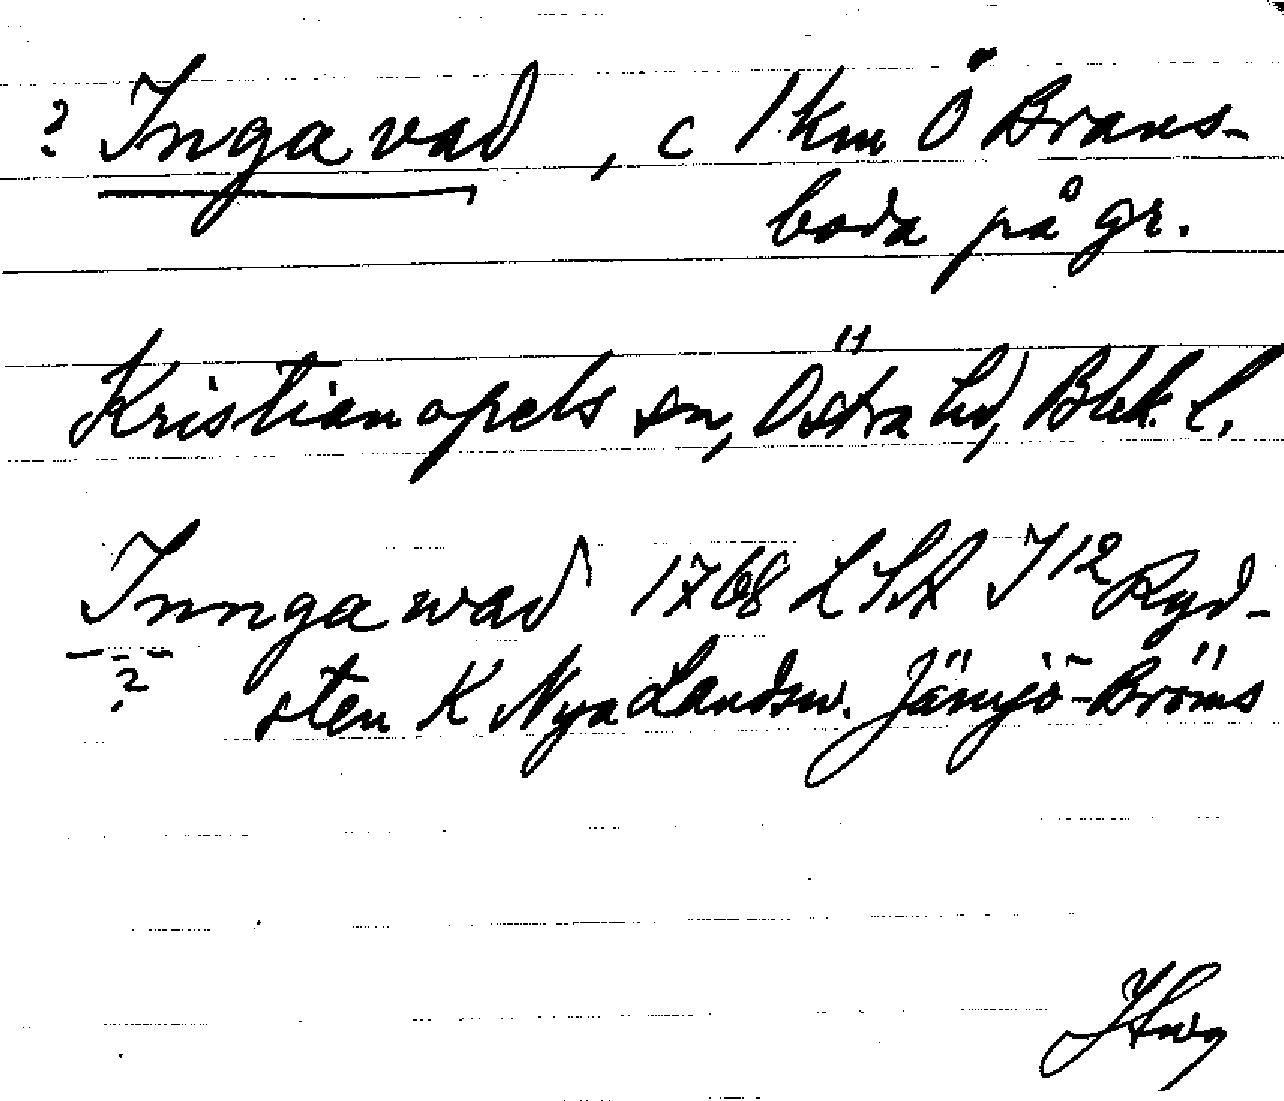 ? Inga vad , c 1 km Ö Brans-
boda på gr.
Kristianopels sn, Östra hd, Blek. l.
Innga wad 1768 LSA I12 Ryd-
?
sten K Nya Landsv. Jämjö-Bröms